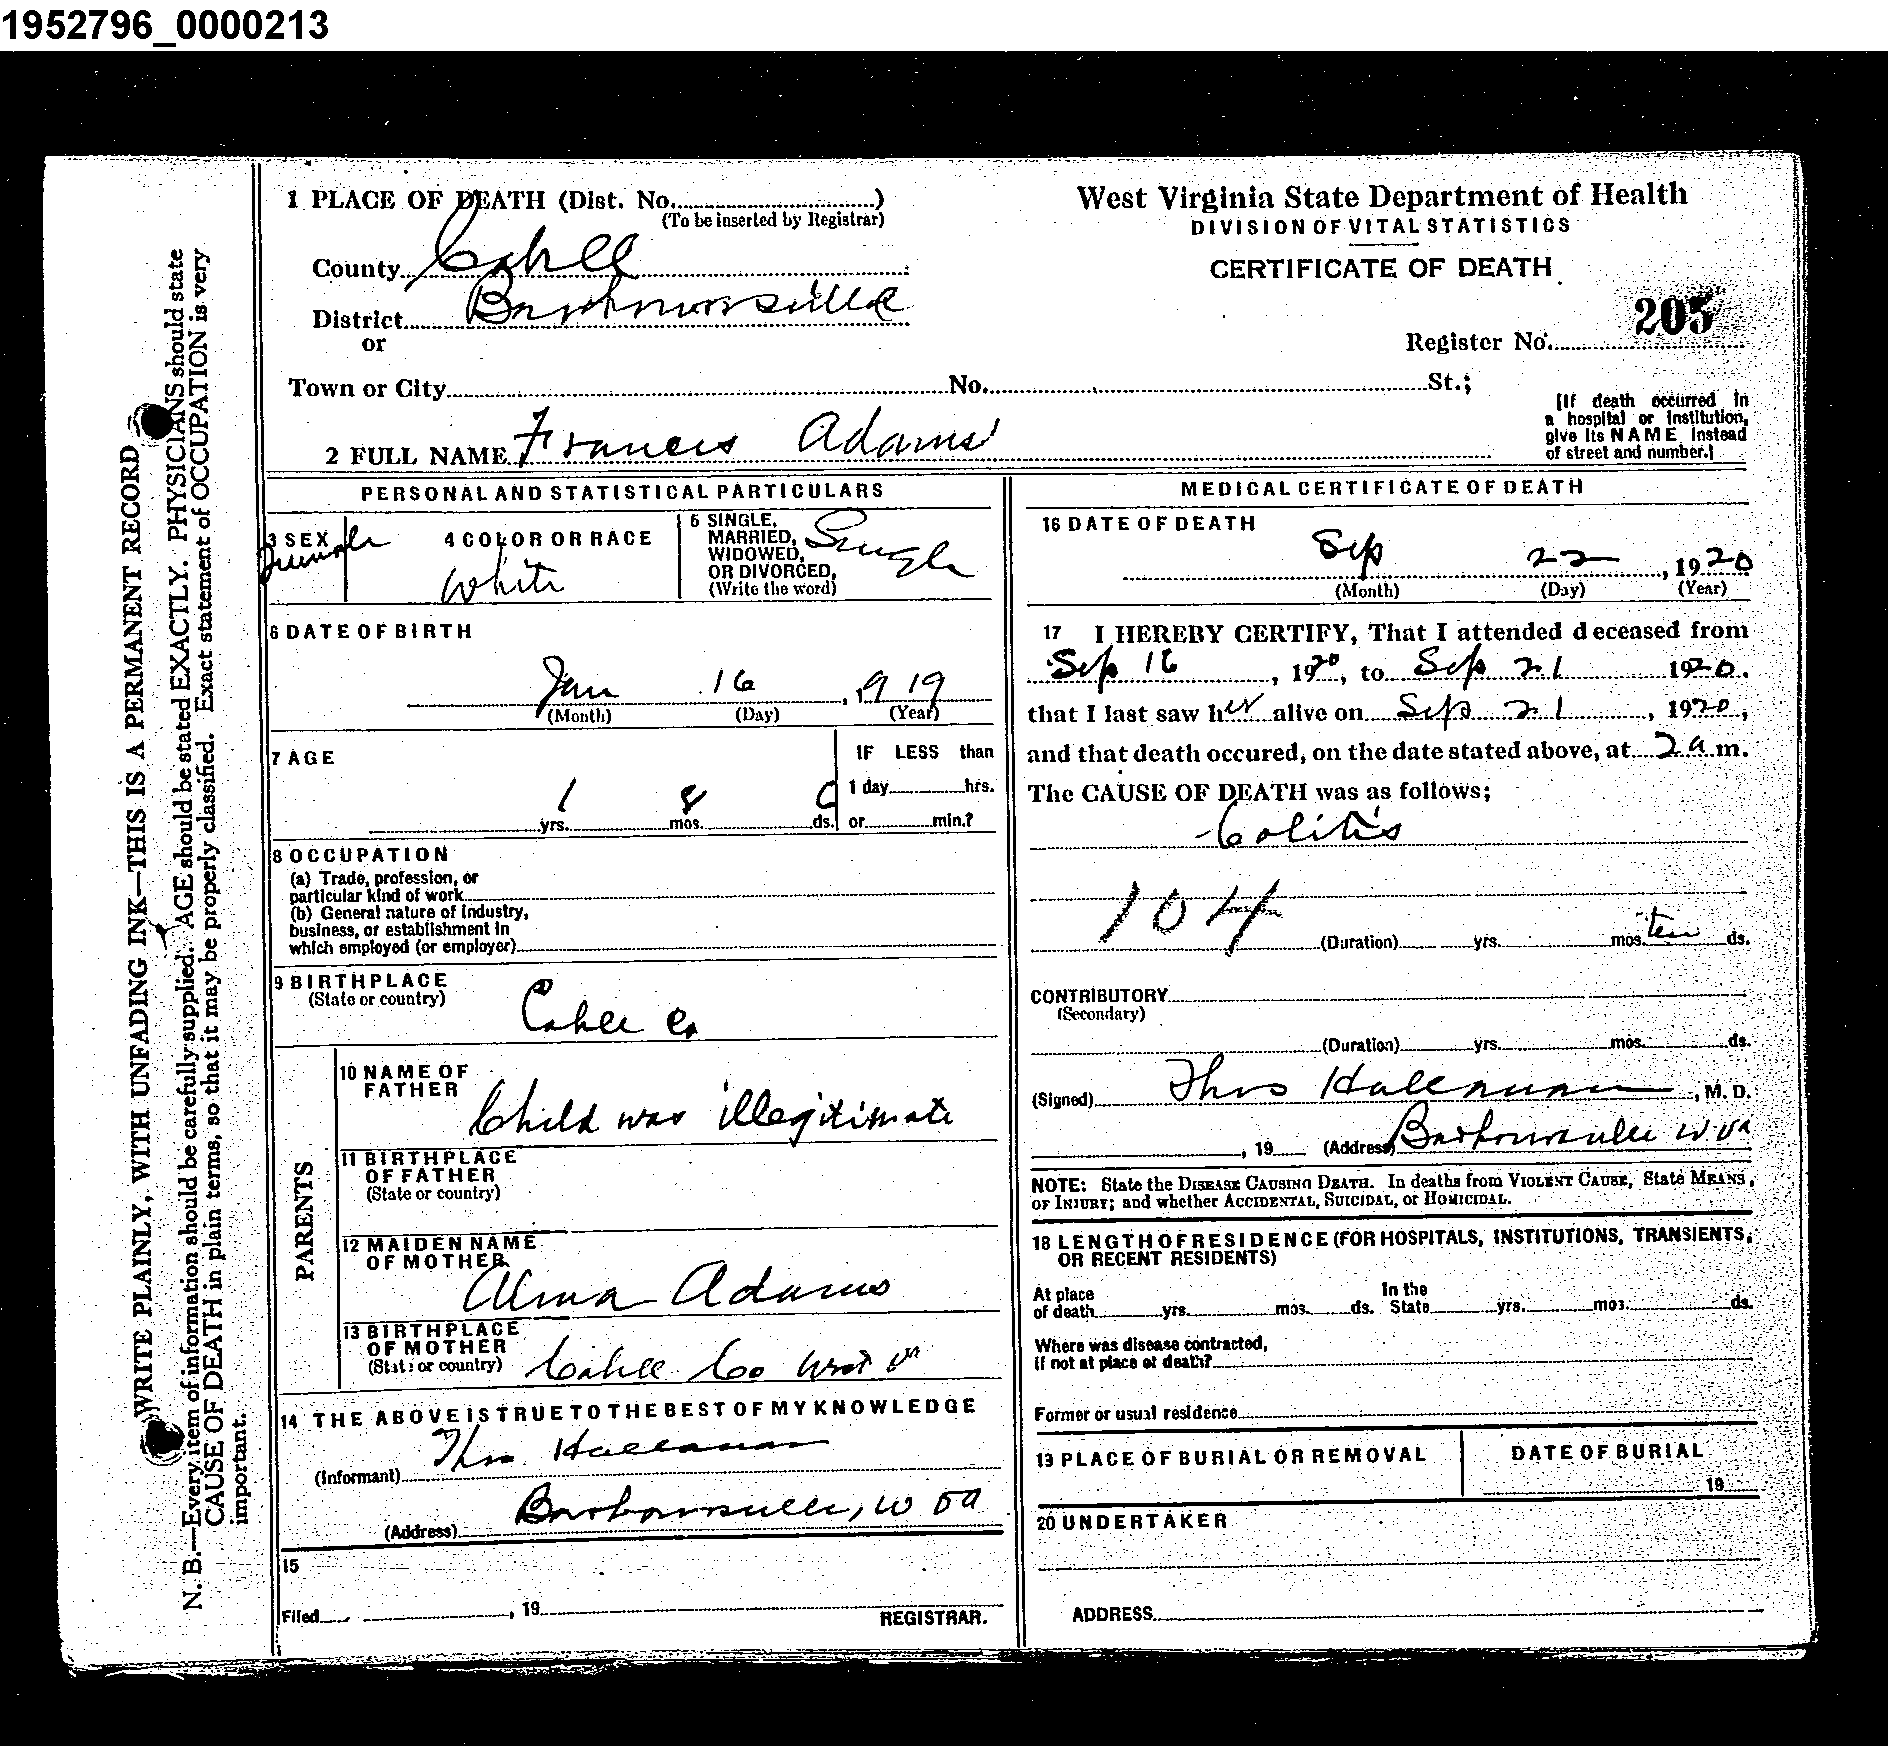 1952796_0000213
1 PLACE OF DEATH (Dist. No. )
(To be inserted by Registrar)
County Cabell
District Barboursville
or
Town or City No. St.;
2 FULL NAME Francis Adams
West Virginia State Department of Health
DIVISION OF VITAL STATISTICS
CERTIFICATE OF DEATH
205
Register No.
[If death occurred in
a hospital or institution,
give its NAME instead
of street and number.]
PERSONAL AND STATISTICAL PARTICULARS
3 SEX Female
4 COLOR OR RACE
White
5 SINGLE,
MARRIED,
WIDOWED,
OR DIVORCED,
(Write the word)
Single
6 DATE OF BIRTH
Jan 16, 1919
(Month) (Day) (Year)
7 AGE
1 yrs. 8 mos. ds.
IF LESS than
1 day hrs.
or min.?
8 OCCUPATION
(a) Trade, profession, or
particular kind of work
(b) General nature of industry,
business, or establishment in
which employed (or employer)
9 BIRTHPLACE
(State or country)
Cabell Co
PARENTS
10 NAME OF
FATHER
Child was illegitimate
11 BIRTHPLACE
OF FATHER
(State or country)
12 MAIDEN NAME
OF MOTHER
Alma Adams
13 BIRTHPLACE
OF MOTHER
(State or country) Cabell Co West Va
14 THE ABOVE IS TRUE TO THE BEST OF MY KNOWLEDGE
(Informant) Thos
(Address) Barboursville, W Va
15
Filed , 19
REGISTRAR.
MEDICAL CERTIFICATE OF DEATH
16 DATE OF DEATH
Sep 22, 1920
(Month) (Day) (Year)
17 I HEREBY CERTIFY, That I attended deceased from
Sep 16, 1920, to Sep 21 1920.
that I last saw her alive on Sep 21, 1920,
and that death occured, on the date stated above, at 2 a m.
The CAUSE OF DEATH was as follows;
Colitis
104
(Duration) yrs. mos. ten ds.
CONTRIBUTORY
(Secondary)
(Duration) yrs. mos. ds.
(Signed) Thos , M. D.
, 19 (Address) Barboursville W Va
NOTE: State the DISEASE CAUSING DEATH. In deaths from VIOLENT CAUSE, State MEANS,
OF INJURY; and whether ACCIDENTAL, SUICIDAL, or HOMICIDAL.
18 LENGTH OF RESIDENCE (FOR HOSPITALS, INSTITUTIONS, TRANSIENTS,
OR RECENT RESIDENTS)
At place
of death yrs. mos. ds.
In the
State yrs. mos. ds.
Where was disease contracted,
if not at place of death?
Former or usual residence
19 PLACE OF BURIAL OR REMOVAL
DATE OF BURIAL
19
20 UNDERTAKER
ADDRESS
WRITE PLAINLY, WITH UNFADING INK—THIS IS A PERMANENT RECORD
N. B.—Every item of information should be carefully supplied. AGE should be stated EXACTLY. PHYSICIANS should state
CAUSE OF DEATH in plain terms, so that it may be properly classified. Exact statement of OCCUPATION is very
important.